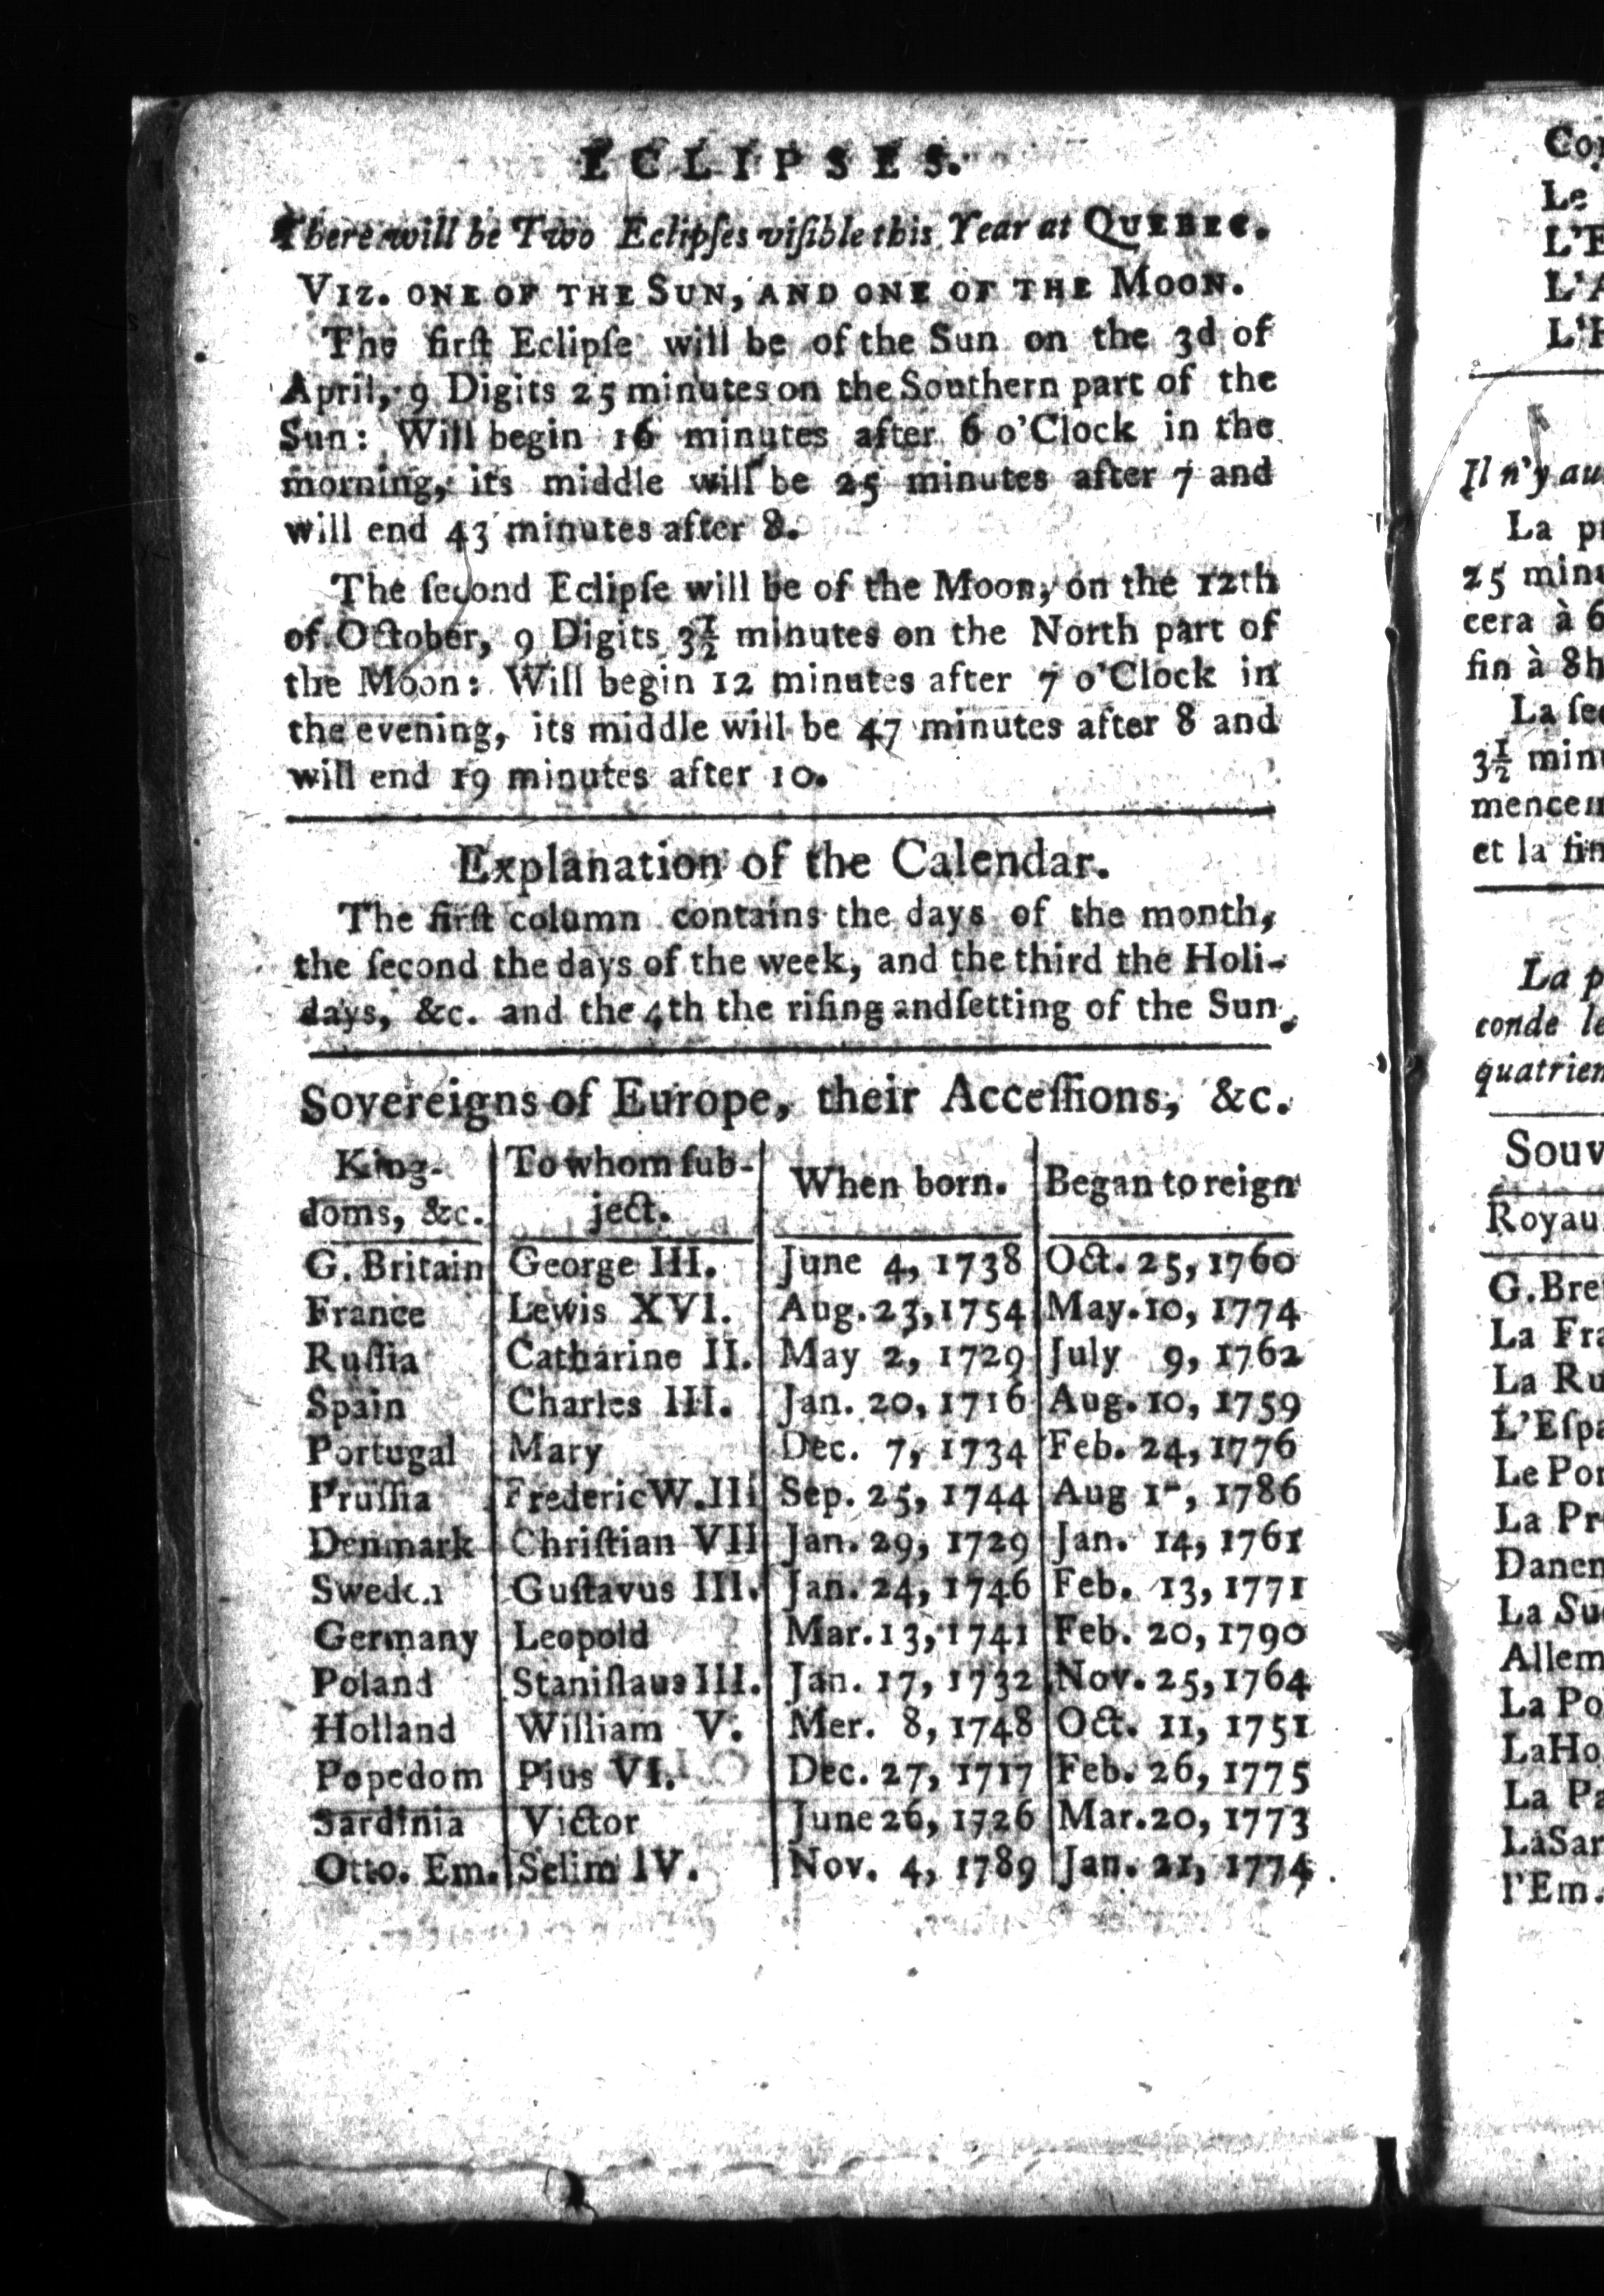 ECLIPSES.
There will be Two Eclipſes viſible this Year at QUEBEC.
VIZ. ONE OF THE SUN, AND ONE OF THE MOON.
The firſt Eclipſe will be of the Sun on the 3d of
April, 9 Digits 25 minutes on the Southern part of the
Sun: Will begin 16 minutes after 6 o'Clock in the
morning, its middle will be 25 minutes after 7 and
will end 43 minutes after 8.
The ſecond Eclipſe will be of the Moon, on the 12th
of October, 9 Digits 3½ minutes on the North part of
the Moon: Will begin 12 minutes after 7 o'Clock in
the evening, its middle will be 47 minutes after 8 and
will end 19 minutes after 10.
Explanation of the Calendar.
The firſt column contains the days of the month,
the ſecond the days of the week, and the third the Holi-
days, &c. and the 4th the riſing andſetting of the Sun.
Sovereigns of Europe, their Acceſſions, &c.
King-doms, &c. To whom ſub-ject. When born. Began to reign
G. Britain George III. June 4, 1738 Oct. 25, 1760
France Lewis XVI. Aug. 23, 1754 May. 10, 1774
Ruſſia Catharine II. May 2, 1729 July 9, 1762
Spain Charles III. Jan. 20, 1716 Aug. 10, 1759
Portugal Mary Dec. 7, 1734 Feb. 24, 1776
Pruſſia Frederic W. III Sep. 25, 1744 Aug 1, 1786
Denmark Chriſtian VII Jan. 29, 1729 Jan. 14, 1761
Sweden Guſtavus III. Jan. 24, 1746 Feb. 13, 1771
Germany Leopold Mar. 13, 1741 Feb. 20, 1790
Poland Staniſlaus III. Jan. 17, 1732 Nov. 25, 1764
Holland William V. Mer. 8, 1748 Oct. 11, 1751
Popedom Pius VI. Dec. 27, 1717 Feb. 26, 1775
Sardinia Victor June 26, 1726 Mar. 20, 1773
Otto. Em. Selim IV. Nov. 4, 1789 Jan. 21, 1774
Le
Il n'y
La
25
cera à 6
fin à 8h
La
3½
et la
La
conde
Souv
Royau
G. Bre
La Fra
La Ru
L'Eſpa
Le Por
La Pr
Danem
La Su
Allem
La Po
La Ho
La Pa
La Sar
l'Em.